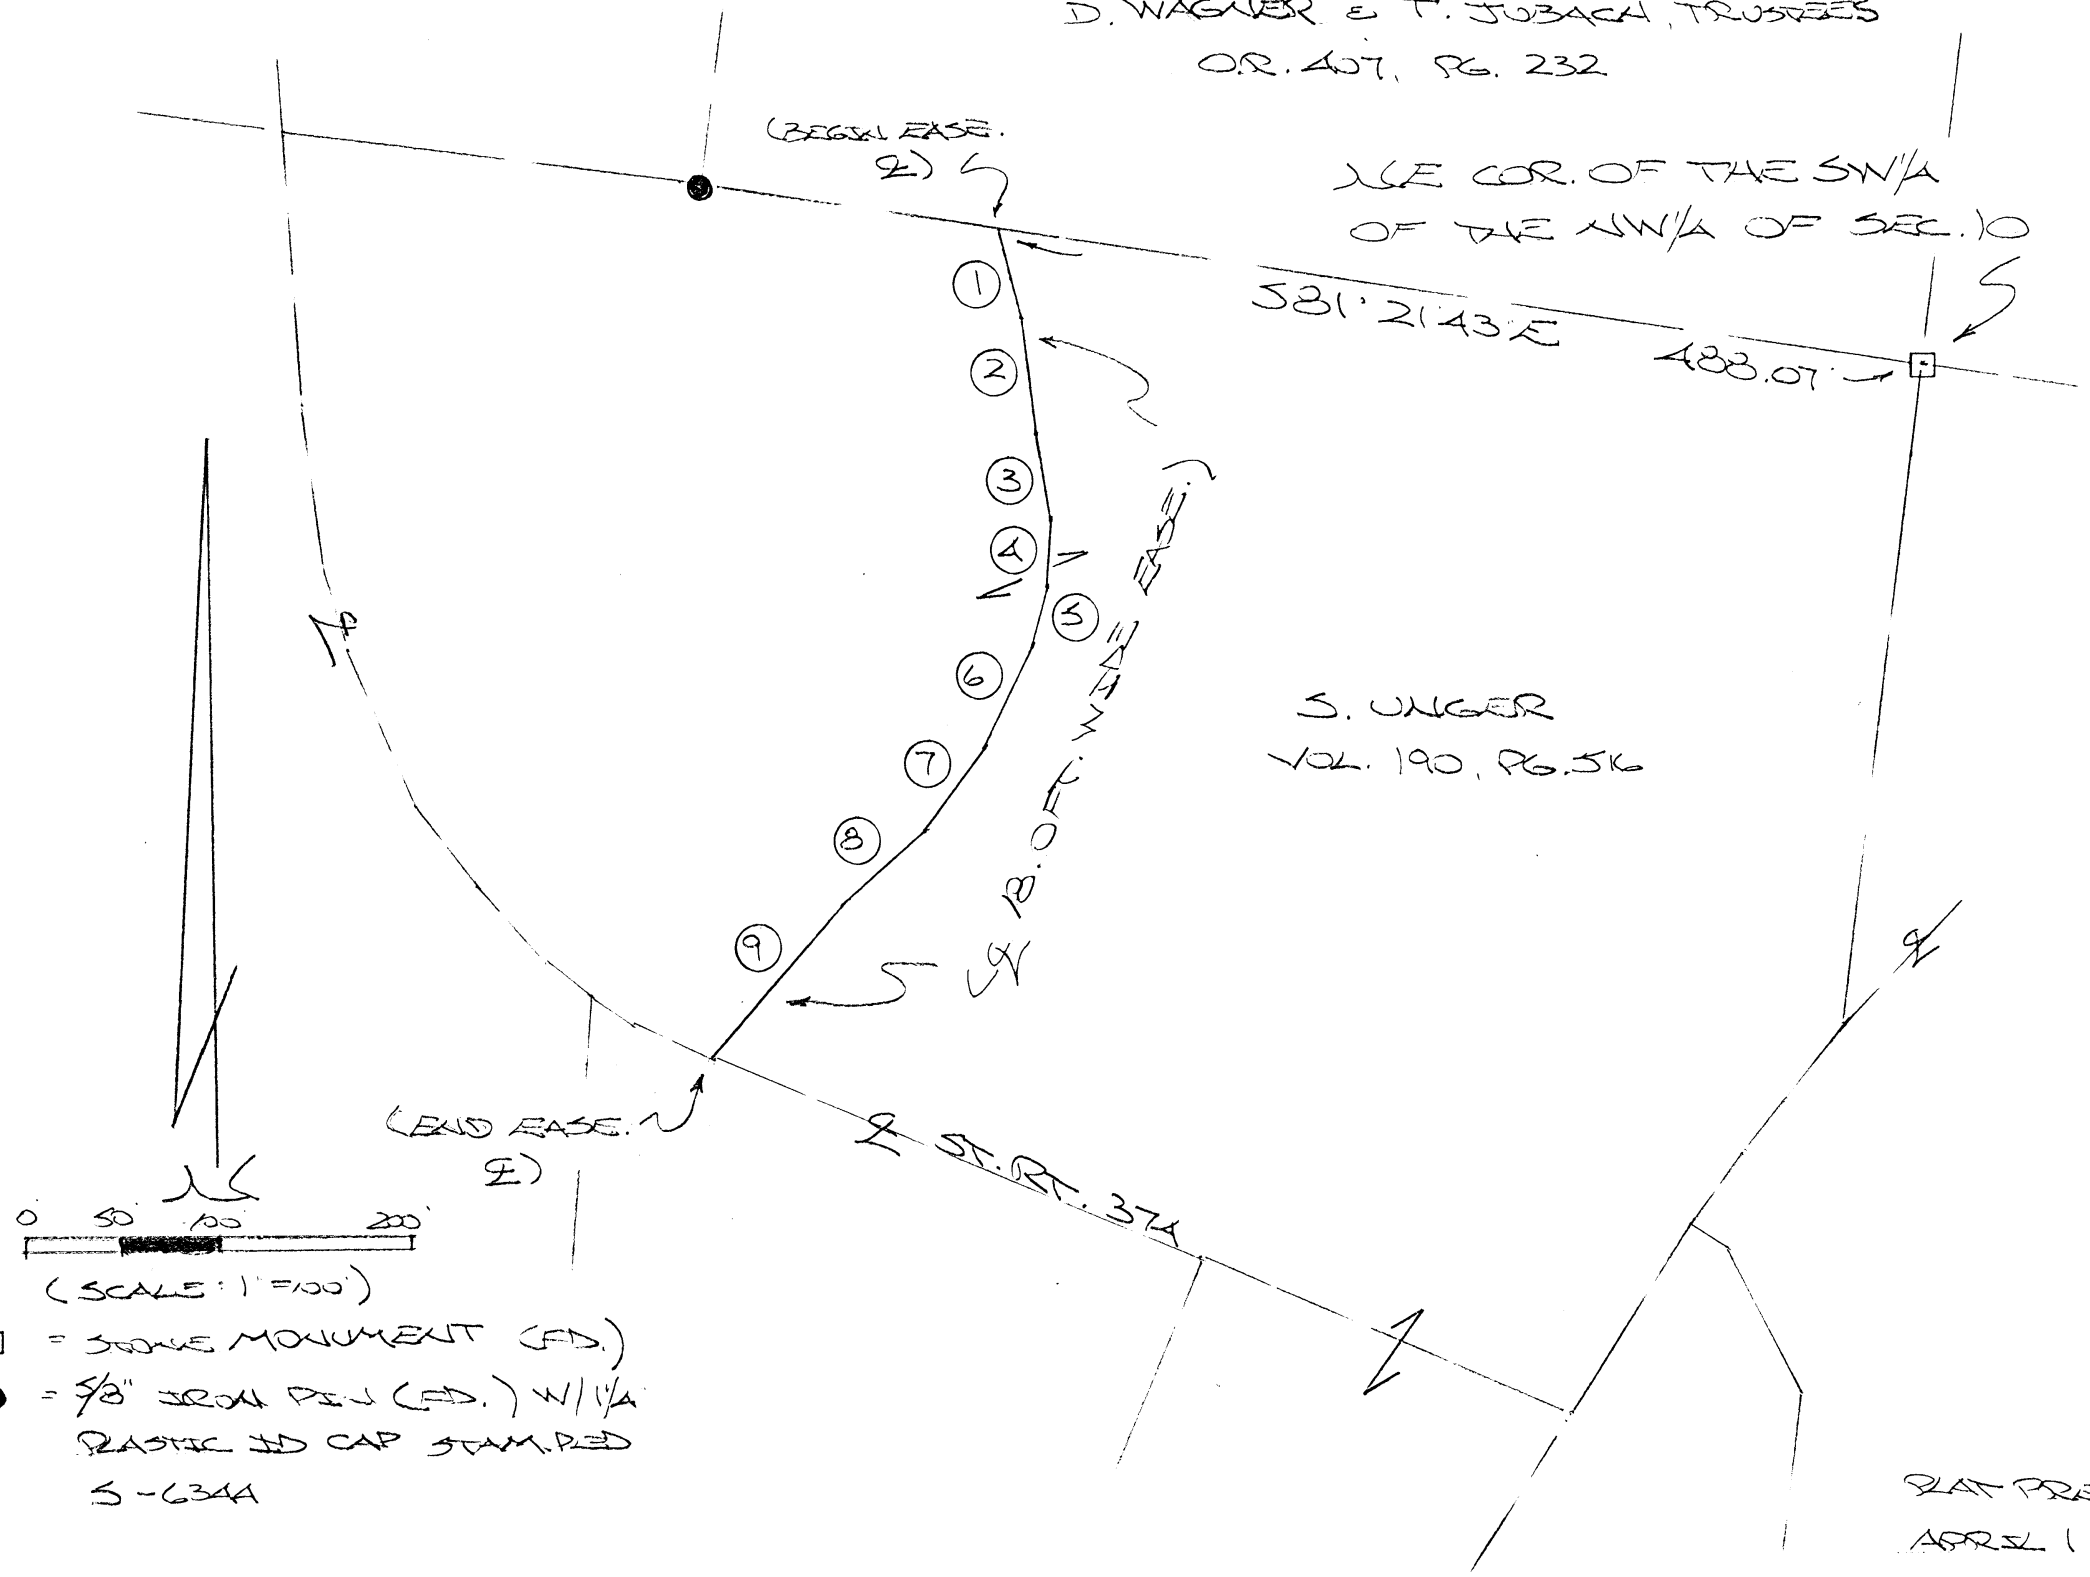 D. WAGNER & T. JUBACH, TRUSTEES
O.R. 407, PG. 232
(BEGIN EASE.
℄)
NE COR. OF THE SW 1/4
OF THE NW 1/4 OF SEC. 10
S81° 21' 43" E
488.07'
1
2
3
4
5
6
7
8
9
(℄ 18.0 FT. WIDE EASE.)
S. UNGER
VOL. 190, PG. 516
℄
℄
(END EASE.
℄)
℄ ST. RT. 374
N
0 50' 100' 200'
(SCALE: 1" = 100')
= STONE MONUMENT (FD.)
= 5/8" IRON PIN (FD.) W/ 1 1/4"
PLASTIC ID CAP STAMPED
S-6344
PLAT PRE
APRIL 1